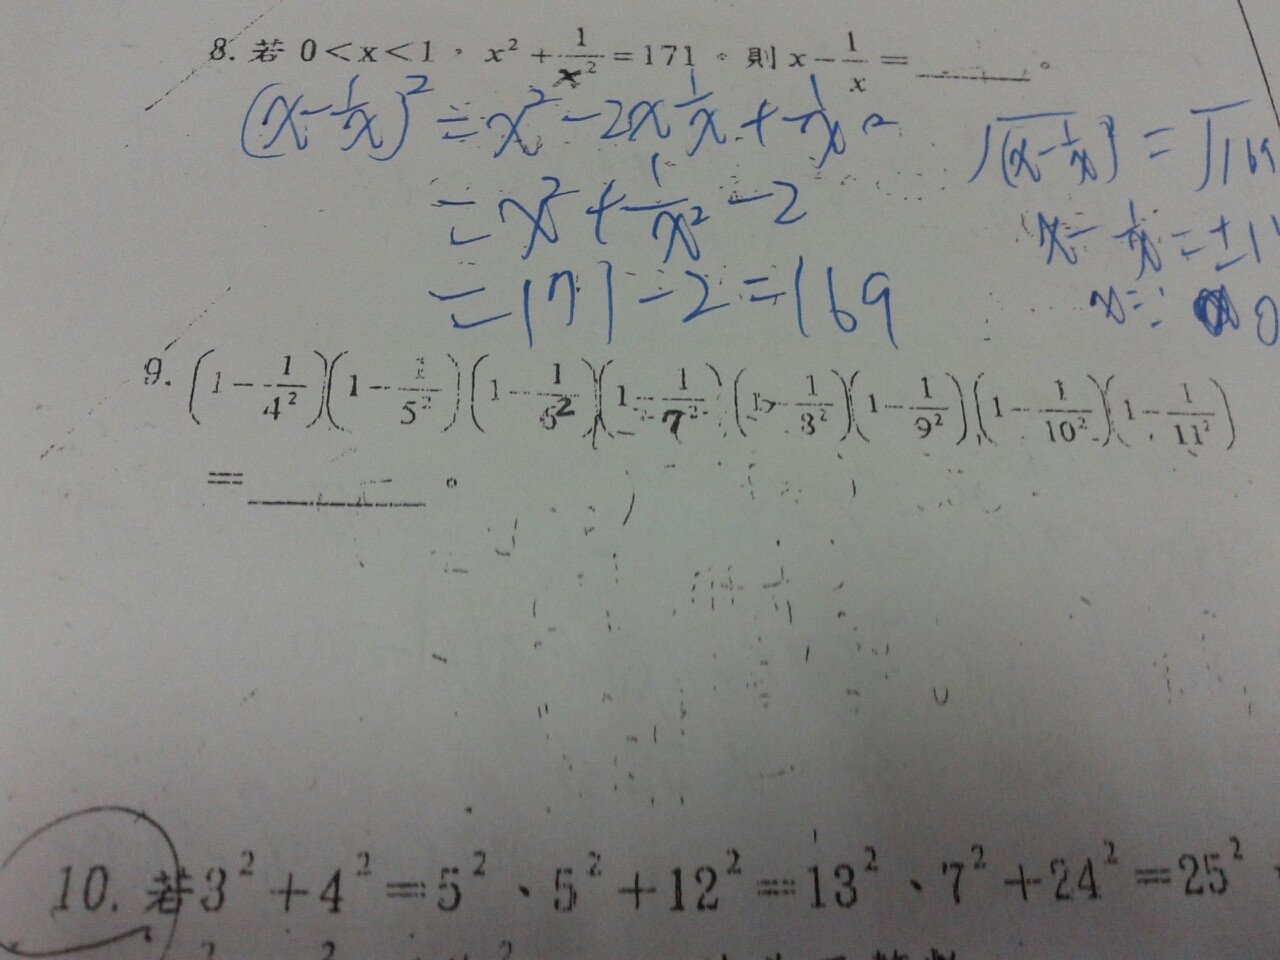 8. 若 0<x<1，x²+1/x²=171。則 x-1/x=______。
(x-1/x)²=x²-2x1/x+1/x²
=x²+1/x²-2
=171-2=169
√(x-1/x)²=√169
x-1/x=±1
x=
9. (1-1/4²)(1-1/5²)(1-1/6²)(1-1/7²)(1-1/8²)(1-1/9²)(1-1/10²)(1-1/11²)
=______。
10. 若3²+4²=5²、5²+12²=13²、7²+24²=25²